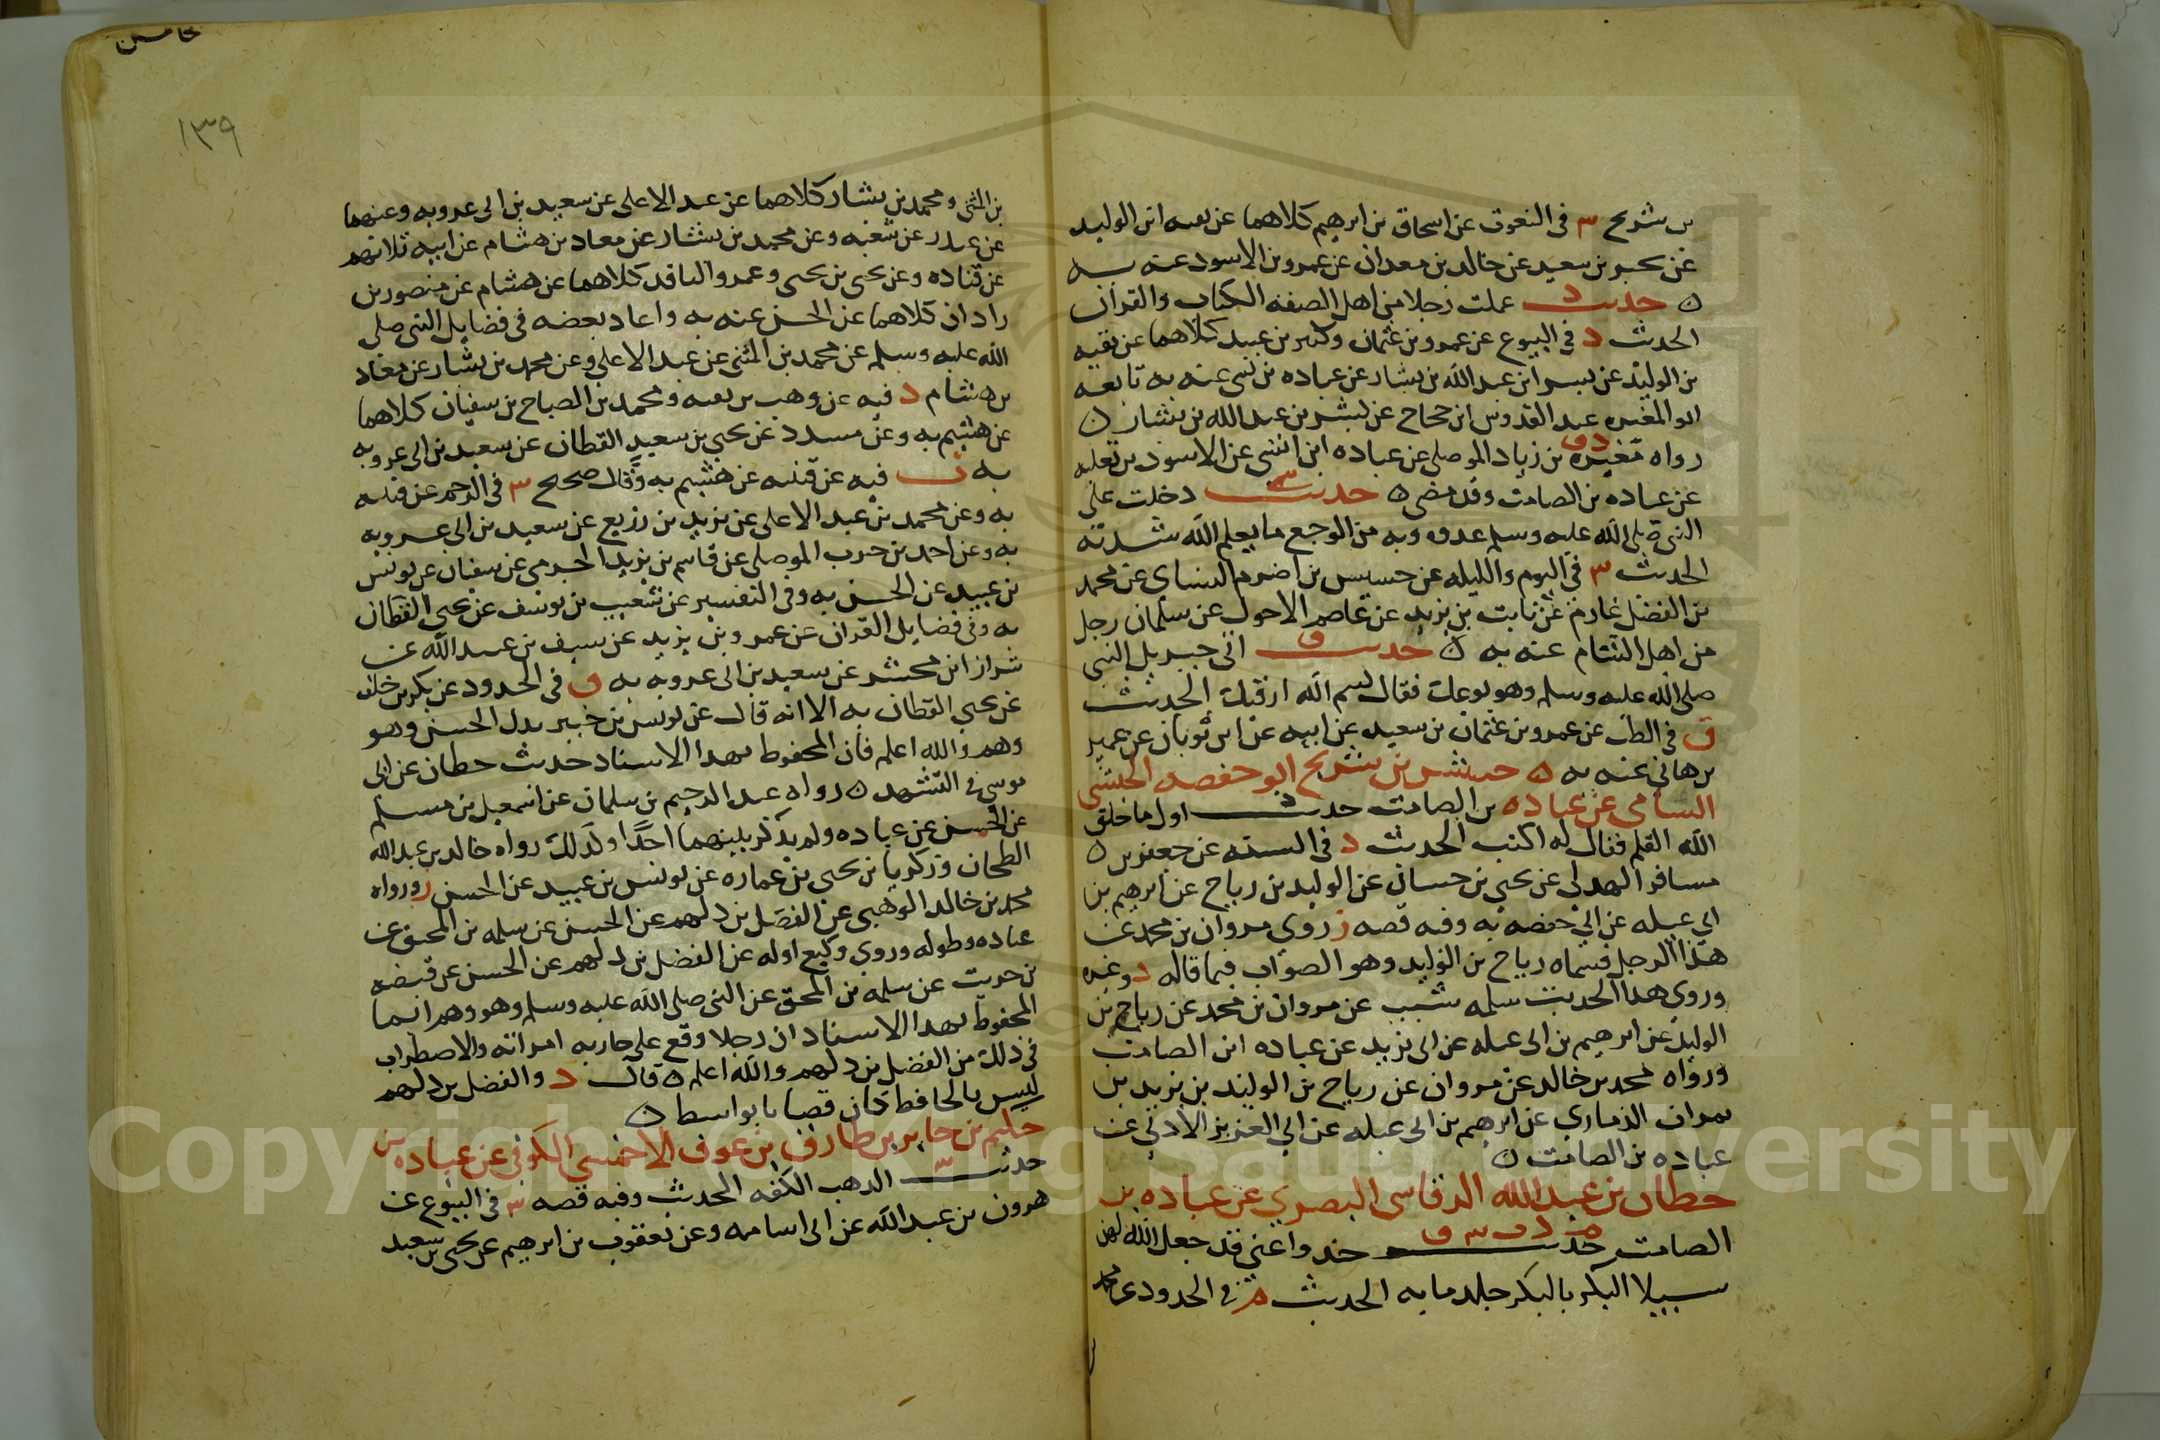 بن شريح س في النعوت عن اسحاق بن ابرهيم كلاهما عن بقيه ابن الوليد
عن بحير بن سعيد عن خالد بن معدان عن عمرو بن الاسود عنه به
ه حديث د علمت رجلا من اهل الصفه الكتاب والقران
الحديث د في البيوع عن عمرو بن عثمان وكثير بن عبيد كلاهما عن بقيه
بن الوليد عن بشر ابن عبد الله بن يشار عن عباده بن نسي عنه به تابعه
ابو المغيره عبد القدوس ابن حجاج عن بشر بن عبد الله بن بشار ه
رواه مغيره بن زياد الموصلي عن عباده ابن نسي عن الاسود بن ثعلبه
د ق
عن عباده بن الصامت وقد مضى ه حديث سي دخلت على
النبي صلى الله عليه وسلم عدوه وبه من الوجع ما يعلم الله شدته
الحديث س في اليوم والليله عن خشيش بن اصرم النساى عن محمد
بن الفضل عارم عن ثابت بن يزيد عن عاصم الاحول عن سلمان رجل
من اهل الشام عنه به ه حديث ق اتى جبريل النبي
صلى الله عليه وسلم وهو يوعك فقال بسم الله ارقيك الحديث
ق في الطب عن عمرو بن عثمان بن سعيد عن ابيه عن ابن ثوبان عن عمير
بن هاني عنه به ه حبيش بن شريح ابو حفصه الحبشي
السامى عن عباده بن الصامت حديث د اول ما خلق
الله القلم فقال له اكتب الحديث د في السنه عن جعفر بن ه
مسافر الهدلي عن يحيى بن حسان عن الوليد بن رباح عن ابرهيم بن
ابي عبله عن ابي حفصه به وفيه قصه ز روى مروان بن محمد عن
هذا الرجل فسماه رباح بن الوليد وهو الصواب فيما قاله د وغيره
وروى هدا الحديث سلمه شبيب عن مروان بن محمد عن رباح بن
الوليد عن ابرهيم بن ابى عبله عن ابى يزيد عن عباده ابن الصامت
ورواه محمد بن خالد عن مروان عن رباح بن الوليد بن يزيد بن
نمران الذماري عن ابرهيم بن ابى عبله عن ابي العزيز الاردني عن
عباده بن الصامت ه
حطان بن عبد الله الرقاسى البصري عن عباده بن
الصامت حديث م د ت س ق خدوا عني قد جعل الله لهن
سبيلا البكر بالبكر جلد مايه الحديث م في الحدود عن محمد
خامس
١٣٩
بن المثنى ومحمد بن بشار كلاهما عن عبد الاعلى عن سعيد بن ابى عروبه وعنهما
عن غندر عن شعبه وعن محمد بن بشار عن معاد بن هشام عن ابيه ثلاثتهم
عن قتاده وعن يحيى بن يحيى وعمرو الناقد كلاهما عن هشام عن منصور بن
زادان كلاهما عن الحسن عنه به واعاد بعضه في فضايل النبي صلى
الله عليه وسلم عن محمد بن المثنى عن عبد الاعلى وعن محمد بن بشار عن معاد
بن هشام د فيه عن وهب بن بقيه ومحمد بن الصباح بن سفيان كلاهما
عن هشيم به وعن مسدد عن يحيى بن سعيد القطان عن سعيد بن ابى عروبه
به ت فيه عن قتيبه عن هشيم به وقال صحيح س في الرجم عن قتيبه
به وعن محمد بن عبد الاعلى عن يزيد بن زريع عن سعيد بن ابى عروبه
به وعن احمد بن حرب الموصلى عن قاسم بن يزيد الجرمى عن سفيان عن يونس
بن عبيد عن الحسن به وفى التفسير عن شعيب بن يوسف عن يحيى القطان
به وفى فضايل القران عن عمرو بن يزيد عن سيف بن عبيد الله عن
شرار ابن محشر عن سعيد بن ابى عروبه به ق في الحدود عن بكر بن خلف
عن يحيى القطان به الا انه قال عن يونس بن جبير بدل الحسن وهو
وهم والله اعلم فان المحفوظ بهدا الاسناد حديث حطان عن ابي
موسى في التشهد ه رواه عبد الرحيم بن سلمان عن اسمعيل بن مسلم
عن الحسن عن عباده ولم يذكر بينهما احدا وكذلك رواه خالد بن عبد الله
الطحان وزكريا بن يحيى بن عماره عن يونس بن عبيد عن الحسن ز ورواه
محمد بن خالد الوهبى عن الفضل بن دلهم عن الحسن عن سلمه بن المحبق عن
عباده وطوله وروى وكيع اوله عن الفضل بن دلهم عن الحسن عن قبيصه
بن حريث عن سلمه بن المحبق عن النبي صلى الله عليه وسلم وهو وهم انما
المحفوظ بهدا الاسناد ان رجلا وقع على جاريه امراته والاضطراب
في ذلك من الفضل بن دلهم والله اعلم ه قال د والفضل بن دلهم
ليس بالحافظ كان قصابا بواسط ه
حكيم بن جابر بن طارق بن عوف الاحمسي الكوفي عن عباده بن
حديث س الدهب الكفه الحديث وفيه قصه س في البيوع عن
هرون بن عبد الله عن ابى اسامه وعن يعقوب بن ابرهيم عن يحيى بن سعيد
Copyright © King Saud University